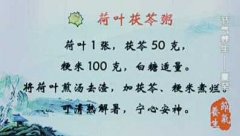 荷叶茯苓粥
荷叶1张，茯苓50克，
粳米100克，白糖适量。
将荷叶煎汤去渣，加茯苓、粳米煮烂
清热解暑，宁心安神。